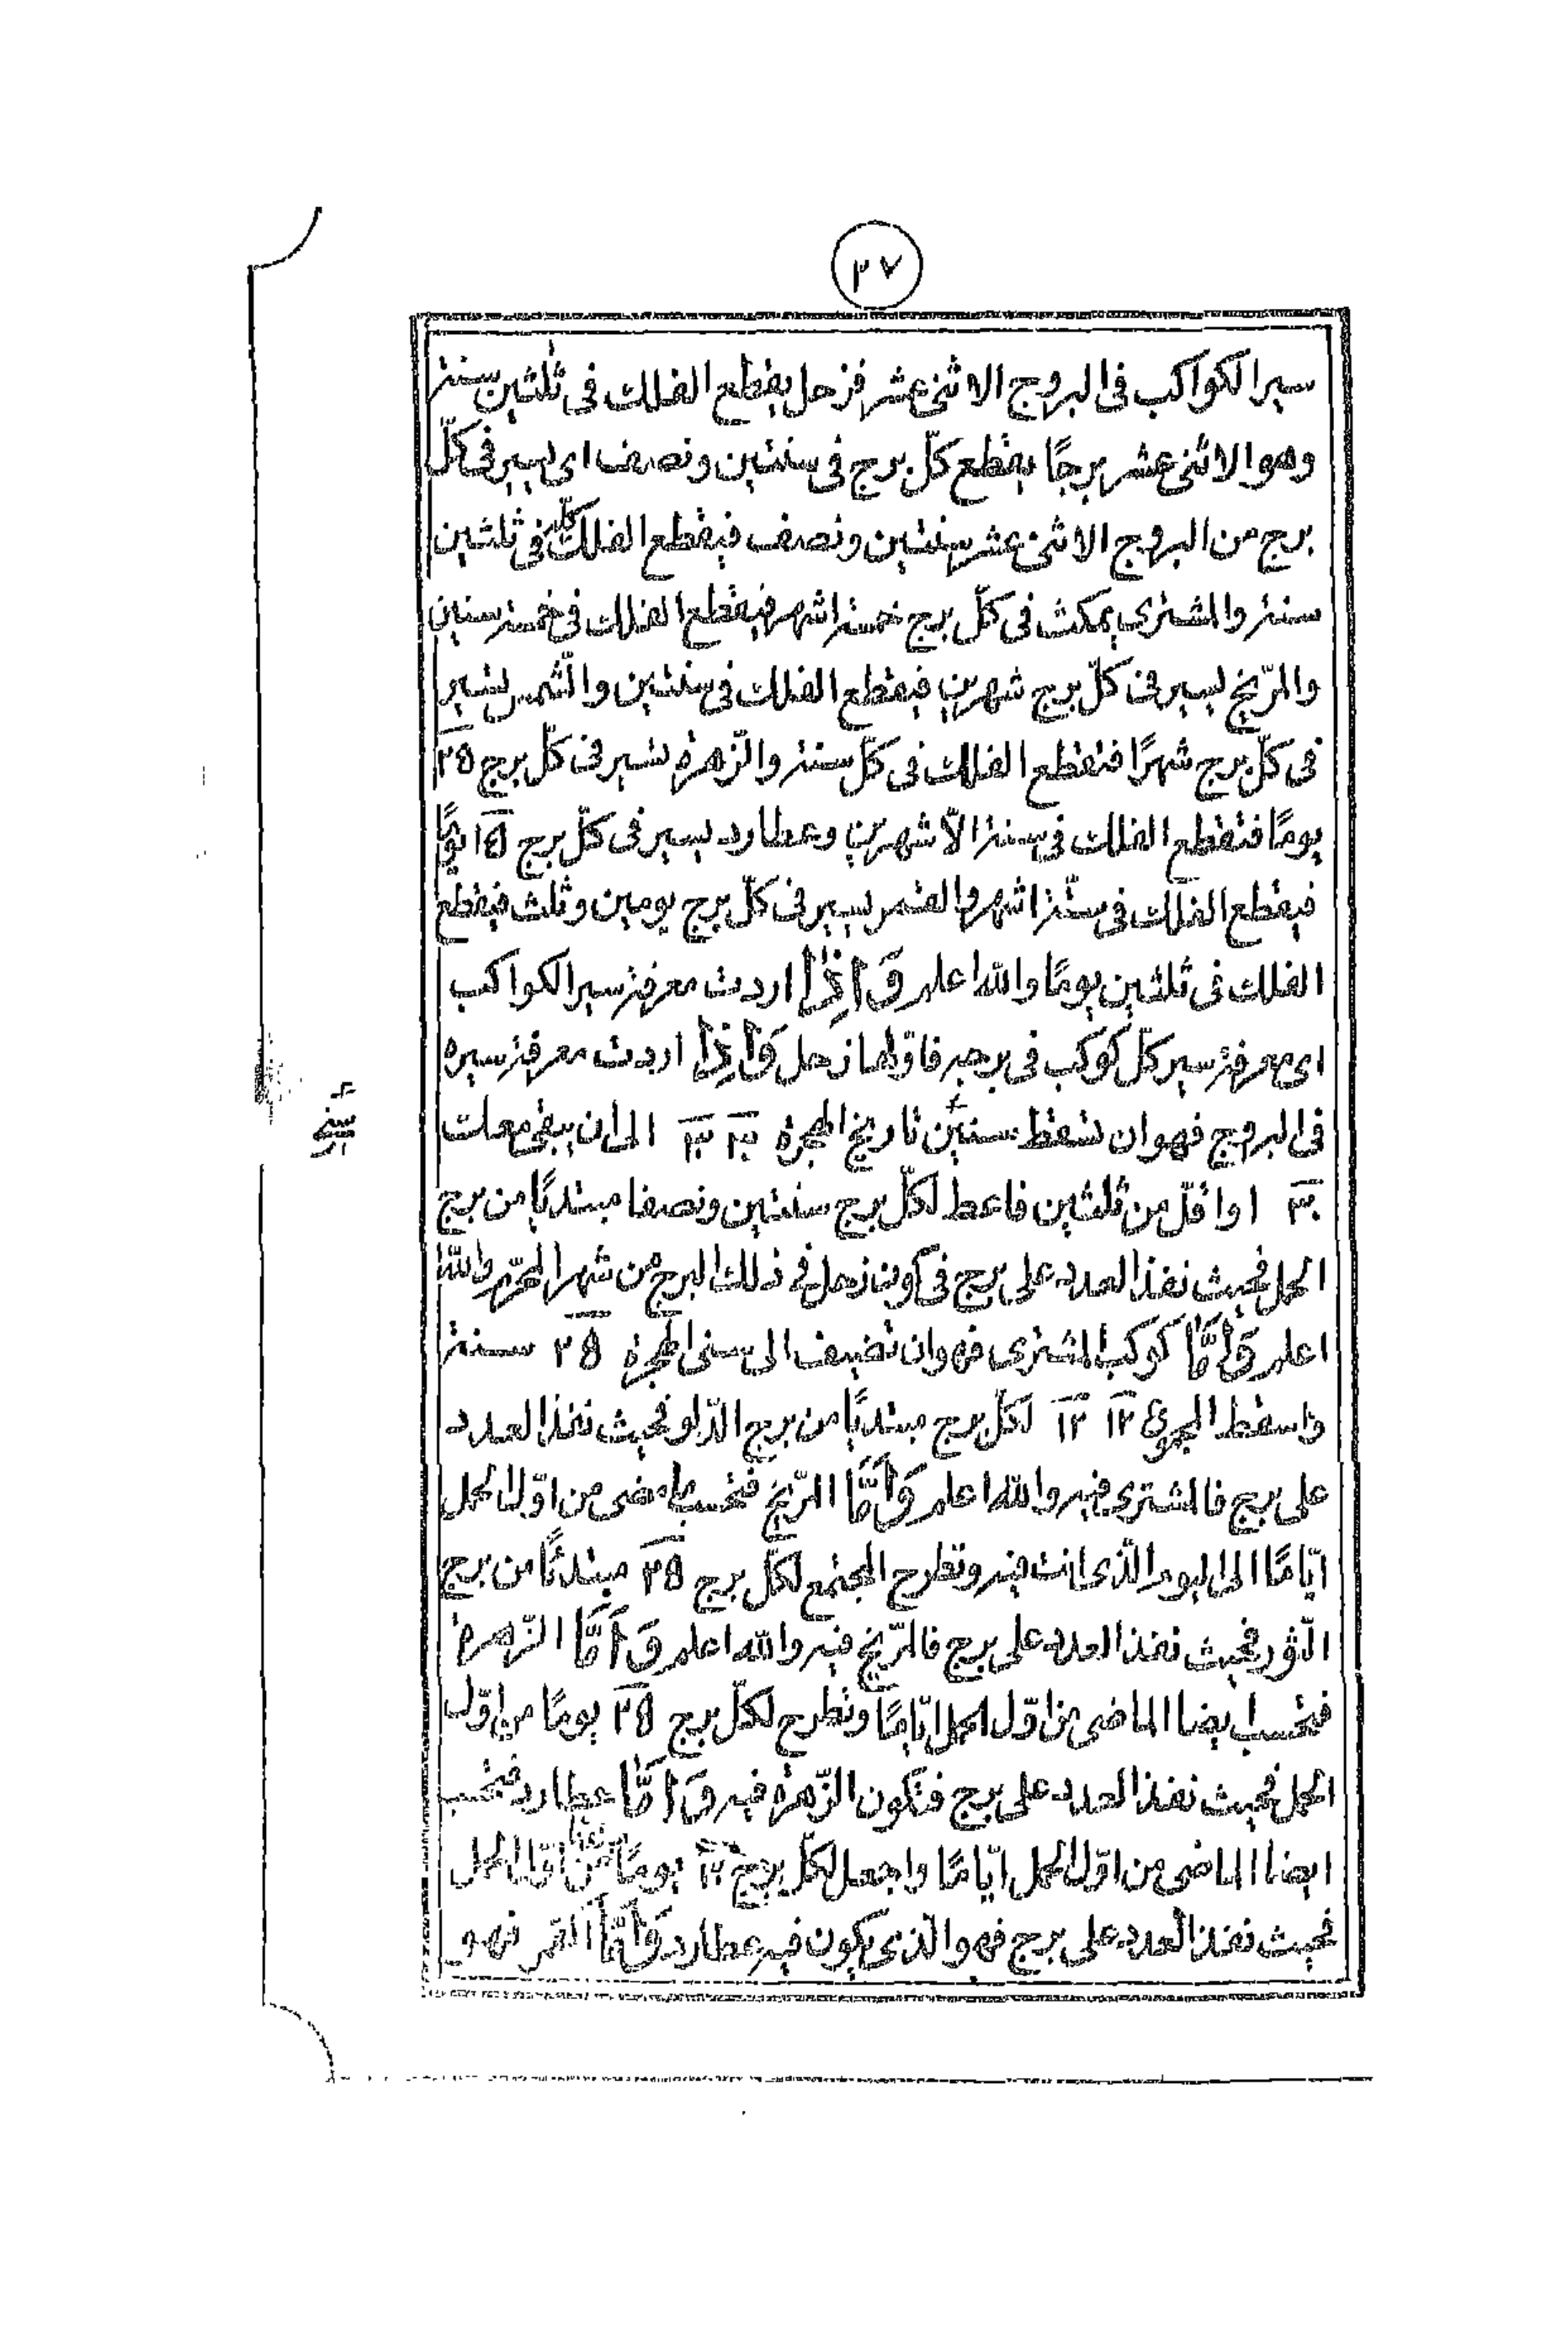 ٣٧
سير الكواكب فى البروج الاثنى عشر فزحل يقطع الفلك فى ثلثين سنة
وهو الاثنى عشر برجًا يقطع كلّ برج فى سنتين ونصف اى يسير فى كلّ
برج من البروج الاثنى عشر سنتين ونصف فيقطع الفلك كلّه فى ثلثين
سنة والمشترى يمكث فى كلّ برج خمسة اشهر فيقطع الفلك فى خمسة سنين
والمرّيخ يسير فى كلّ برج شهرين فيقطع الفلك فى سنتين والشّمس تسير
فى كلّ برج شهرًا فتقطع الفلك فى كلّ سنة والزّهرة تسير فى كلّ برج ٢٥
يومًا فتقطع الفلك فى سنة الّا شهرين وعطارد يسير فى كلّ برج ١٥ يومًا
فيقطع الفلك فى ستّة اشهر والقمر يسير فى كلّ برج يومين وثلث فيقطع
الفلك فى ثلثين يومًا والله اعلم وَاِذَا اردت معرفة سير الكواكب
اى معرفة سير كلّ كوكب فى برجه فاوّلها زحل وَاِذَا اردت معرفة سيره
فى البروج فهو ان تسقط سنين تاريخ الهجرة ٣٠ ٣٠ الى ان يبقى معك
٣٠ او اقلّ من ثلثين فاعط لكلّ برج سنتين ونصفا مبتديًا من برج
الحمل فحيث نفذ العدد على برج فيكون زحل فى ذلك البرج من شهر المحرّم والله
اعلم وَاَمَّا كوكب المشترى فهو ان تضيف الى سنى الهجرة ٢٥ سنة
واسقط المجموع ١٢ ١٢ لكلّ برج مبتديًا من برج الدّلو فحيث نفذ العدد
على برج فالمشترى فيه والله اعلم وَاَمَّا المرّيخ فتحسب ما مضى من اوّل الحمل
ايّامًا الى اليوم الّذى انت فيه وتطرح المجتمع لكلّ برج ٢٥ مبتدئًا من برج
الثّور فحيث نفذ العدد على برج فالمرّيخ فيه والله اعلم وَاَمَّا الزّهرة
فتحسب ايضا الماضى من اوّل الحمل ايّامًا وتطرح لكلّ برج ٢٥ يومًا من اوّل
الحمل فحيث نفذ العدد على برج فتكون الزّهرة فيه وَاَمَّا عطارد فتحسب
ايضا الماضى من اوّل الحمل ايّامًا واجعل لكلّ برج يومًا من اوّل الحمل
فحيث نفذ العدد على برج فهو الّذى يكون فيه عطارد وَاَمَّا القمر فهو